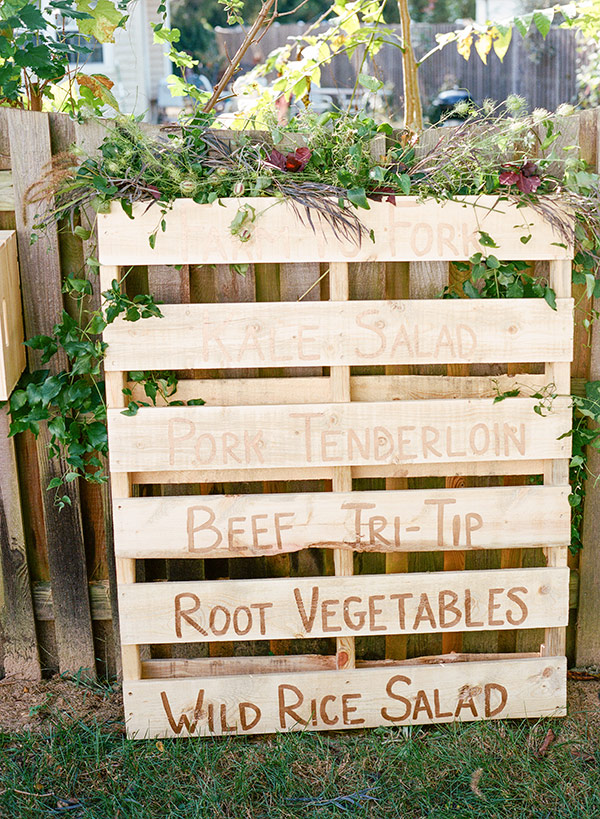 Farm to Fork
Kale Salad
Pork Tenderloin
Beef Tri-Tip
Root Vegetables
Wild Rice Salad